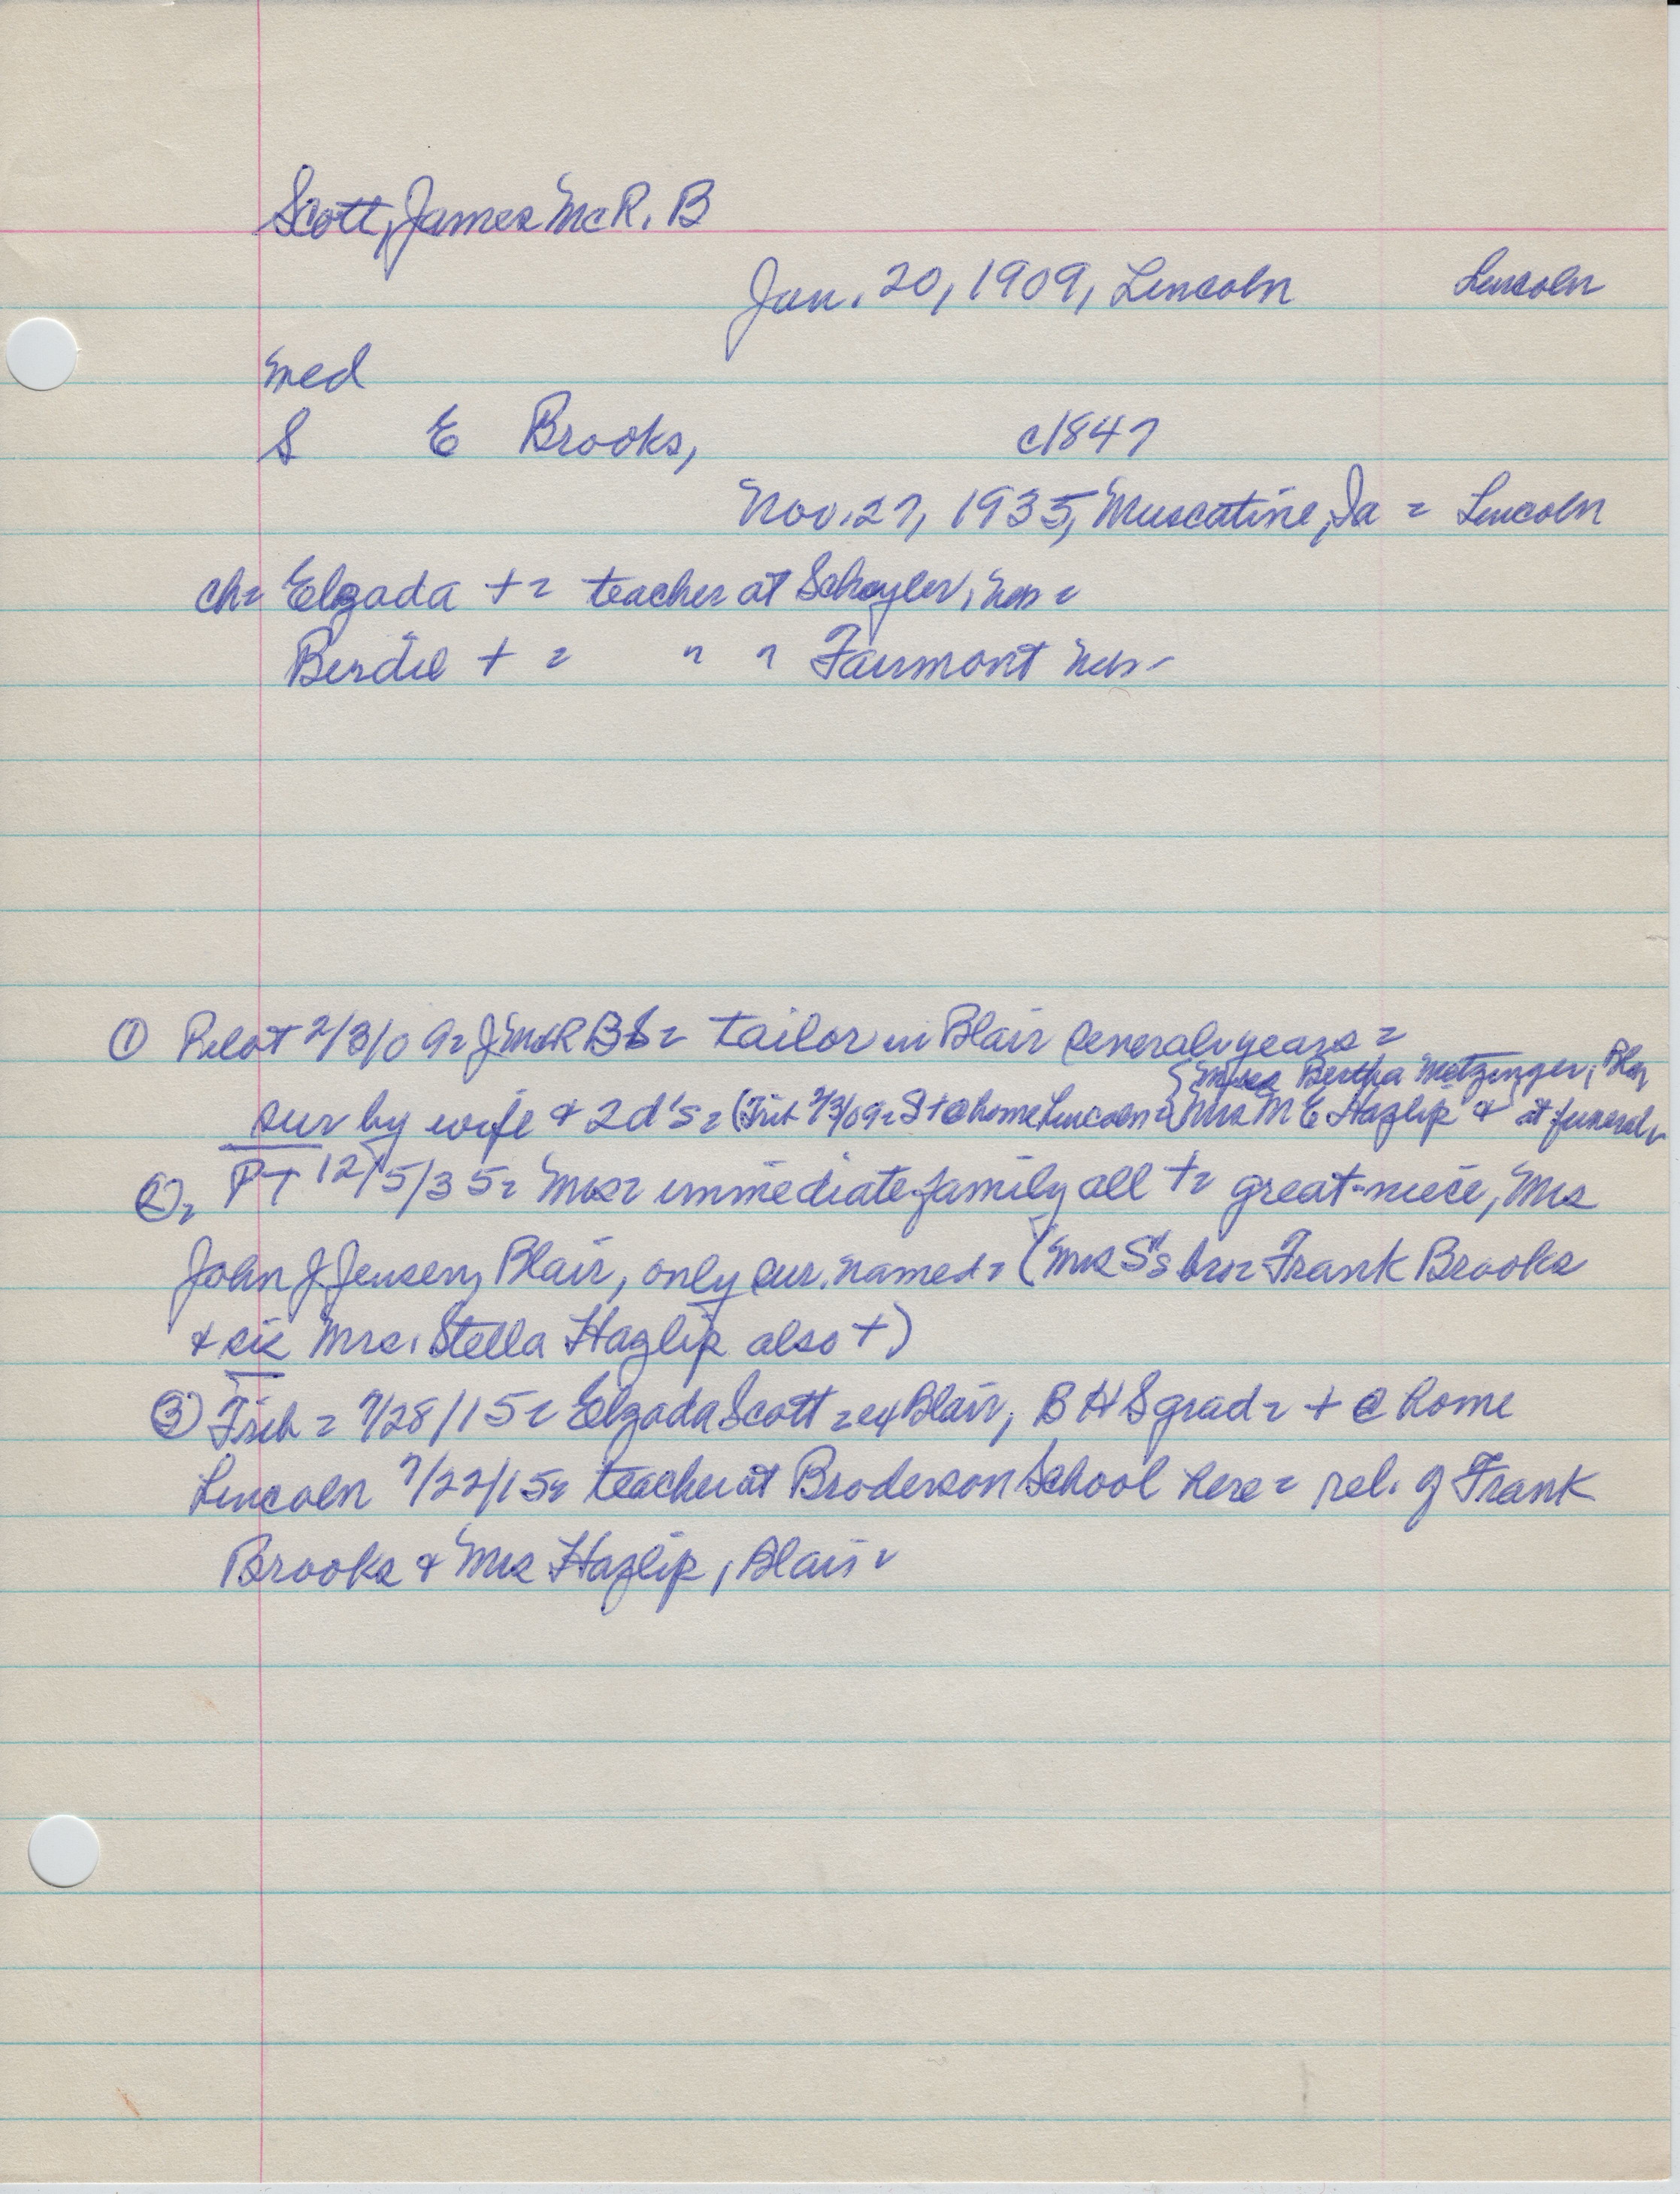 Scott, James McR. B
Jan. 20, 1909, Lincoln Lincoln
med
S E Brooks, c1847
Nov. 27, 1935, Muscatine, Ia = Lincoln
ch= Elzada + = teacher at Schuyler, =
Berdie + = " " Fairmont
① Pilot 2/3/09= J McR B S= tailor in Blair several years =
sur by wife & 2 d's = (Trib 2/3/09= S + @ home Lincoln = { Mrs M E Hazlip & Bertha Metzinger, Blair, at funeral
②= PT 12/5/35= Mrs= immediate family all += great-niece, Mrs
John J Jensen, Blair, only sur. named= (Mrs S's bro= Frank Brooks
& sis Mrs. Stella Hazlip also +)
③ Trib = 7/28/15= Elzada Scott = ex Blair, B H S grad = + @ home
Lincoln 7/22/15= teacher at Broderson School here = rel. of Frank
Brooks & Mrs Hazlip, Blair =